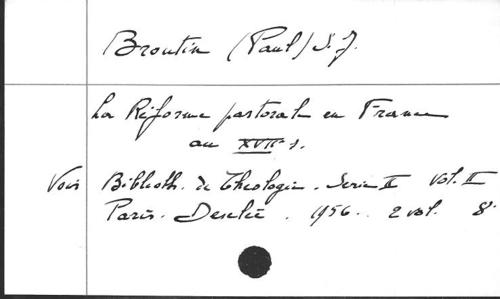 Broutin (Paul) S. J.
La Réforme pastorale en France
au XVIIe s.
Voir Biblioth. de Théologie. Serie II Vol. II
Paris. Desclée. 1956. 2 vol. 8°